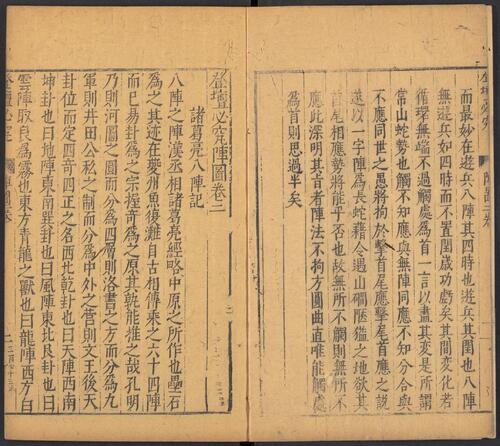 而最妙在遊兵八陣其四時也遊兵其閏也八陣
無遊兵如四時而不置閏歲功虧矣其間變化若
循環無端不過觸處為首一言以盡其變是所謂
常山蛇勢也觸不知應與無陣同應不知分合與
不應同世之愚將拘於擊首尾應擊尾首應之說
遂以一字陣為長蛇藉令遇山磵壓猛之地欲其
首尾相應勢將能乎否也故無所不觸則無所不
應此深明其旨者陣法不拘方圓曲直唯能觸處
為首則思過半矣
登壇必究陣圖卷二
諸葛亮八陣記
八陣之陣漢丞相諸葛亮經略中原之所作也壘石
為之其迹在夔州魚復灘自古相傳乘之六十四陣
而已易卦為之宗握奇為之原其乾能推之哉孔明
乃則河圖之圓而分為四層則洛書之方而分為九
軍則井田公私之制而分為中外之營則文王後天
卦位而定四奇四正之名西北乾卦也曰天陣西南
坤卦也曰地陣東南巽卦也曰風陣東北艮卦也曰
雲陣取良為霧也東方青龍之獸也曰龍陣西方白
登壇必究